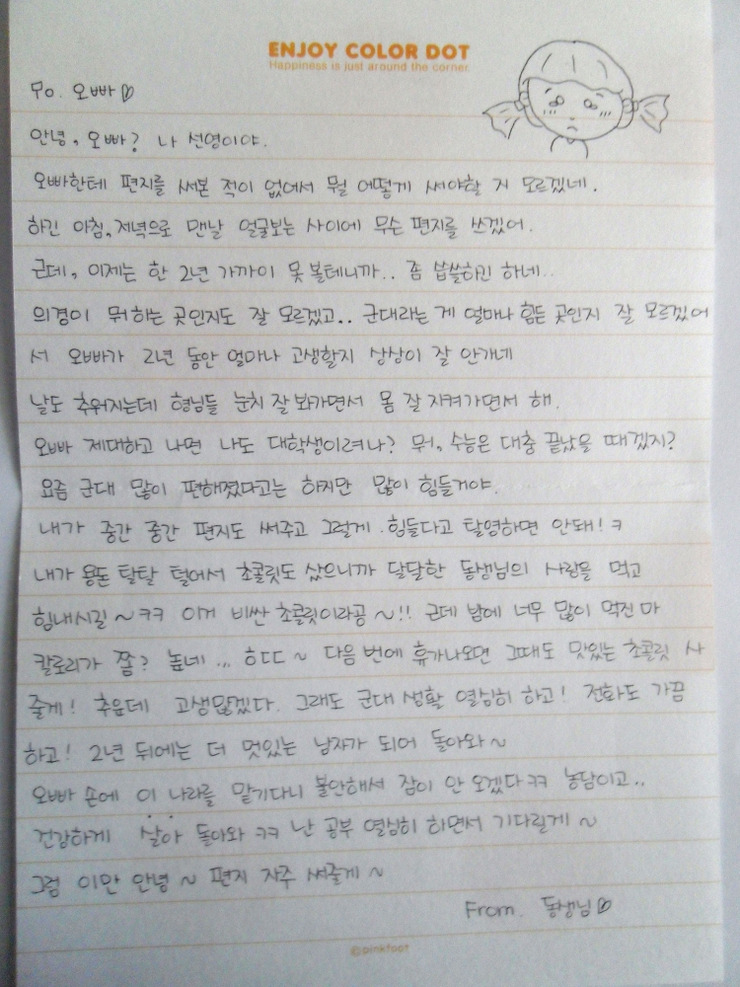 ENJOY COLOR DOT
Happiness is just around the corner.
To. 오빠♡
안녕, 오빠? 나 선영이야.
오빠한테 편지를 써본 적이 없어서 뭘 어떻게 써야할 지 모르겠네.
하긴 아침, 저녁으로 맨날 얼굴보는 사이에 무슨 편지를 쓰겠어.
근데, 이제는 한 2년 가까이 못 볼테니까.. 좀 씁쓸하긴 하네..
의경이 뭐하는 곳인지도 잘 모르겠고.. 군대라는 게 얼마나 힘든 곳인지 잘 모르겠어
서 오빠가 2년 동안 얼마나 고생할지 상상이 잘 안가네
날도 추워지는데 형님들 눈치 잘 봐가면서 몸 잘 지켜가면서 해.
오빠 제대하고 나면 나도 대학생이려나? 뭐, 수능은 대충 끝났을 때겠지?
요즘 군대 많이 편해졌다고는 하지만 많이 힘들거야.
내가 중간 중간 편지도 써주고 그럴게. 힘들다고 탈영하면 안돼! ㅋ
내가 용돈 탈탈 털어서 초콜릿도 샀으니까 달달한 동생님의 사랑을 먹고
힘내시길~ㅋㅋ 이거 비싼 초콜릿이라공~!! 근데 밤에 너무 많이 먹진 마
칼로리가 쫌? 높네... ㅎㄷㄷ~ 다음 번에 휴가나오면 그때도 맛있는 초콜릿 사
줄게! 추운데 고생많겠다. 그래도 군대 생활 열심히 하고! 전화도 가끔
하고! 2년 뒤에는 더 멋있는 남자가 되어 돌아와~
오빠 손에 이 나라를 맡기다니 불안해서 잠이 안 오겠다ㅋㅋ 농담이고..
건강하게 살아 돌아와 ㅋㅋ 난 공부 열심히 하면서 기다릴게~
그럼 이만 안녕~ 편지 자주 써줄게~
From. 동생님♡
©pinkfoot